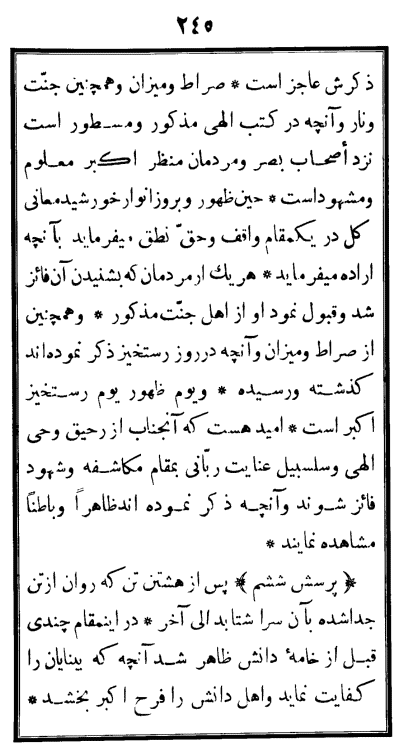 ٢٤٥
ذکرش عاجز است * صراط ومیزان وهمچنین جنّت
ونار وآنچه در کتب الهی مذکور ومسطور است
نزد أصحاب بصر ومردمان منظر اکبر معلوم
ومشهود است * حین ظهور و بروز انوار خورشید معانی
کل در یکمقام واقف وحقّ نطق میفرماید بآنچه
اراده میفرماید * هر یك ازمردمان که بشنیدن آن فائز
شد وقبول نمود او از اهل جنّت مذکور * وهمچنین
از صراط ومیزان وآنچه در روز رستخیز ذکر نموده اند
کذشته ورسیده * ویوم ظهور یوم رستخیز
اکبر است * امید هست که آنجناب از رحیق وحی
الهی وسلسبیل عنایت ربّانی بمقام مکاشفه وشهود
فائز شوند وآنچه ذکر نموده اند ظاهراً وباطناً
مشاهده نمایند *
﴿ پرسش ششم ﴾ پس از هشتن تن که روان از تن
جدا شده بآن سرا شتابد الی آخر * در اینمقام چندی
قبل از خامهٔ دانش ظاهر شد آنچه که بینایان را
کفایت نماید واهل دانش را فرح اکبر بخشد *